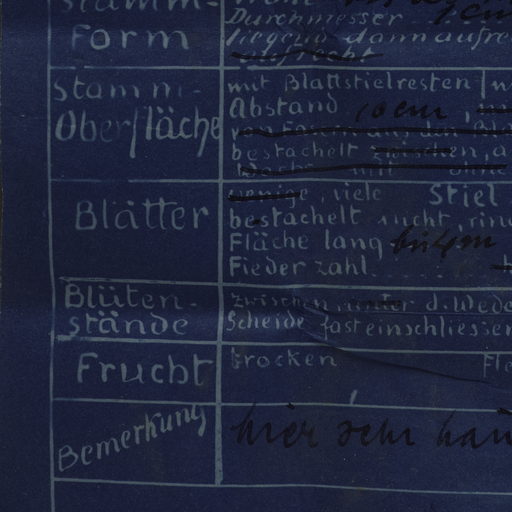 Stamm-
Form
Durchmesser
liegend dann aufre
aufrecht
Stamm-
Oberfläche
mit Blattstielresten
Abstand 10 cm
bestachelt zwischen, a
Blätter
wenige, viele Stiel
bestachelt nicht, rin
Fläche lang bis 4m
Fiederzahl
Blüten-
stände
zwischen, unter d. Wede
Scheide fast einschliessen
Frucht
trocken Fle
Bemerkung
hier sehr häu